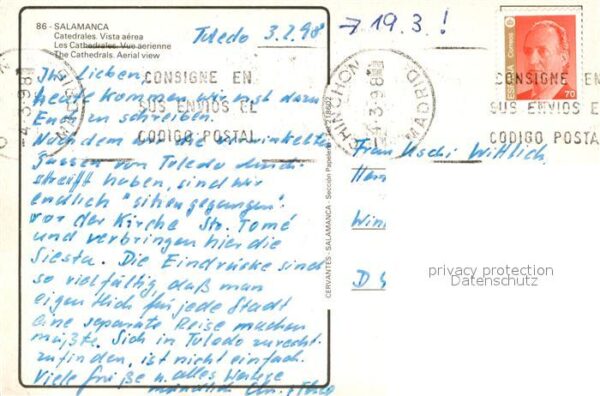 86 - SALAMANCA
Catedrales. Vista aérea
Les Cathédrales. Vue aerienne
The Cathedrals. Aerial view
Toledo 3.2.98
→ 19.3.!
Ihr Lieben,
heute kommen wir erst dazu
Euch zu schreiben.
Nachdem wir die verwinkelten
Gassen von Toledo durch-
streift haben, sind wir
endlich "sitzengegangen"
vor der Kirche Sto. Tomé
und verbringen hier die
Siesta. Die Eindrücke sind
so vielfältig, daß man
eigentlich für jede Stadt
eine separate Reise machen
müßte. Sich in Toledo zurecht-
zufinden, ist nicht einfach.
Viele Grüße u. alles Weitere
mündlich
CONSIGNE EN
SUS ENVIOS EL
CODIGO POSTAL
CHINCHON
-4.3.98
MADRID
CONSIGNE EN
SUS ENVIOS EL
CODIGO POSTAL
ESPAÑA Correos
70
CERVANTES - SALAMANCA - Sección Papelería
Frau Uschi Wittlich
privacy protection
Datenschutz